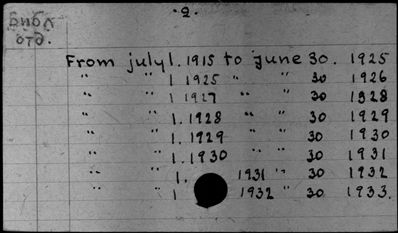 2.
From july 1. 1915 to june 30. 1925
" " 1 1925 " " 30 1926
" " 1 1927 " " 30 1928
" " 1. 1928 " " 30 1929
" " 1. 1929 " " 30 1930
" " 1. 1930 " " 30 1931
" " 1. 1931 " 30 1932
" " 1 1932 " 30 1933.